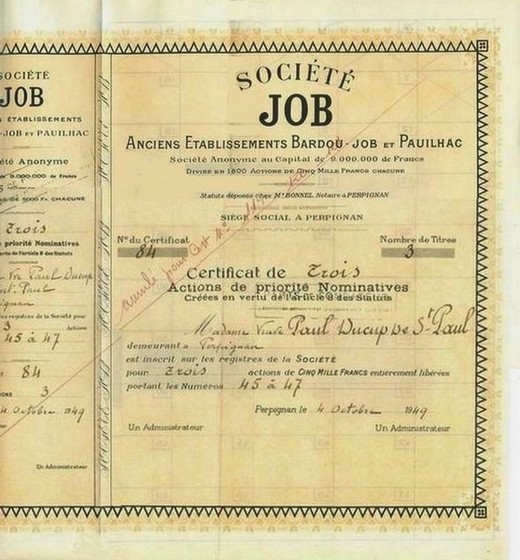 SOCIÉTÉ
JOB
ÉTABLISSEMENTS
JOB ET PAUILHAC
Anonyme
de 9.000.000 de Francs
FRANCS CHACUNE
Trois
priorité Nominatives
de l'Article 8 des Statuts
Vve Paul Ducup
St Paul
registres de la Société pour
3 Actions
45 à 47
84
3
4 Octobre 1949
Un Administrateur
SOCIÉTÉ
JOB
ANCIENS ETABLISSEMENTS BARDOU-JOB ET PAUILHAC
Société Anonyme au Capital de 9.000.000 de Francs
DIVISÉ EN 1800 ACTIONS DE CINQ MILLE FRANCS CHACUNE
Statuts déposés chez Me BONNEL Notaire à PERPIGNAN
SIÈGE SOCIAL A PERPIGNAN
No du Certificat
84
Nombre de Titres
3
annulé pour Cert No
Certificat de Trois
Actions de priorité Nominatives
Créées en vertu de l'Article 8 des Statuts
Madame Veuve Paul Ducup De St Paul
demeurant à Perpignan
est inscrit sur les registres de la SOCIÉTÉ
pour Trois actions de CINQ MILLE FRANCS entièrement libérées
portant les Numéros 45 à 47
Perpignan le 4 Octobre 1949
Un Administrateur
Un Administrateur